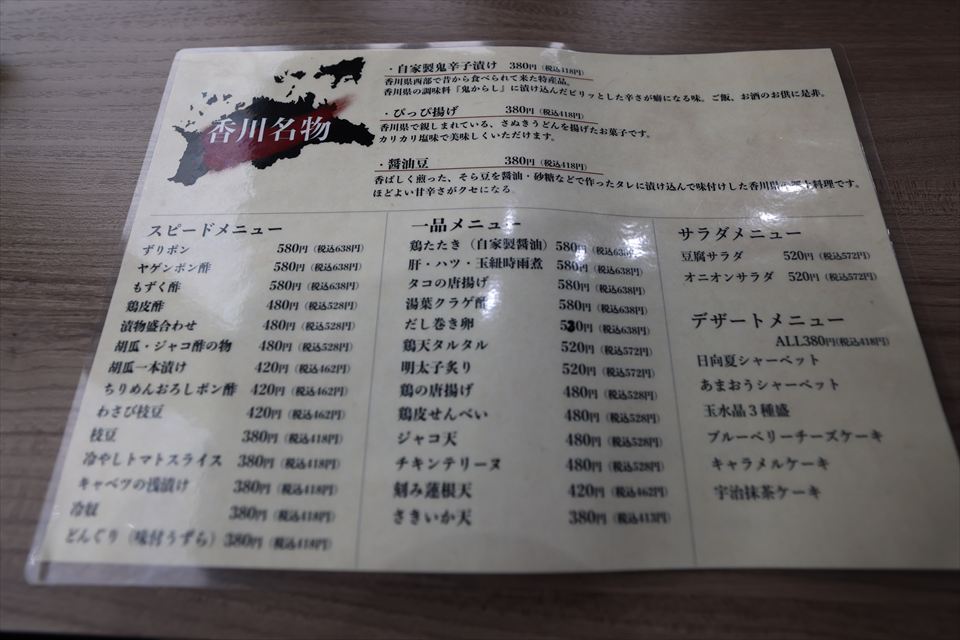 香川名物
・自家製鬼辛子漬け 380円(税込418円)
香川県西部で昔から食べられて来た特産品。
香川県の調味料『鬼からし』に漬け込んだピリッとした辛さが癖になる味。ご飯、お酒のお供に是非。
・ぴっぴ揚げ 380円(税込418円)
香川県で親しまれている、さぬきうどんを揚げたお菓子です。
カリカリ塩味で美味しくいただけます。
・醤油豆 380円(税込418円)
香ばしく煎った、そら豆を醤油・砂糖などで作ったタレに漬け込んで味付けした香川県の郷土料理です。
ほどよい甘辛さがクセになる。
スピードメニュー
ずりポン 580円(税込638円)
ヤゲンポン酢 580円(税込638円)
もずく酢 580円(税込638円)
鶏皮酢 480円(税込528円)
漬物盛合わせ 480円(税込528円)
胡瓜・ジャコ酢の物 480円(税込528円)
胡瓜一本漬け 420円(税込462円)
ちりめんおろしポン酢 420円(税込462円)
わさび枝豆 420円(税込462円)
枝豆 380円(税込418円)
冷やしトマトスライス 380円(税込418円)
キャベツの浅漬け 380円(税込418円)
冷奴 380円(税込418円)
どんぐり(味付うずら) 380円(税込418円)
一品メニュー
鶏たたき(自家製醤油) 580円(税込638円)
肝・ハツ・玉紐時雨煮 580円(税込638円)
タコの唐揚げ 580円(税込638円)
湯葉クラゲ酢 580円(税込638円)
だし巻き卵 530円(税込638円)
鶏天タルタル 520円(税込572円)
明太子炙り 520円(税込572円)
鶏の唐揚げ 480円(税込528円)
鶏皮せんべい 480円(税込528円)
ジャコ天 480円(税込528円)
チキンテリーヌ 480円(税込528円)
刻み蓮根天 420円(税込462円)
さきいか天 380円(税込413円)
サラダメニュー
豆腐サラダ 520円(税込572円)
オニオンサラダ 520円(税込572円)
デザートメニュー
ALL380円(税込418円)
日向夏シャーベット
あまおうシャーベット
玉水晶3種盛
ブルーベリーチーズケーキ
キャラメルケーキ
宇治抹茶ケーキ